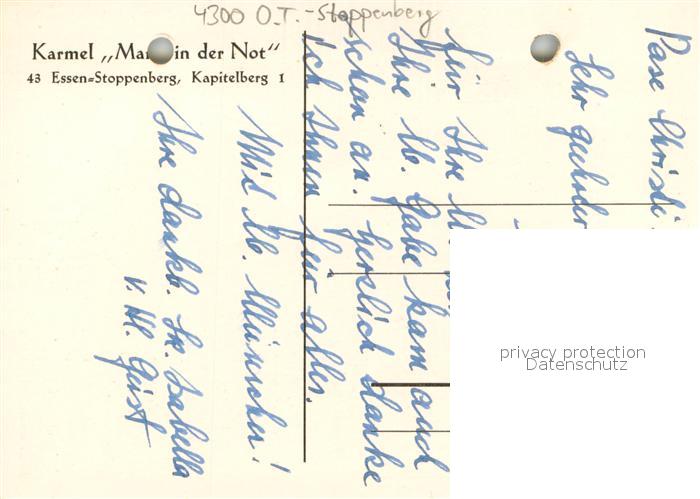 4300 O.T.-Stoppenberg
Karmel „Mar in der Not"
43 Essen=Stoppenberg, Kapitelberg 1
Pax Christi
Sehr geehrter
für Ihre
Ihre lb. Gabe kam auch
schon an. Herzlich danke
ich Ihnen für alles.
Mit lb. Wünschen!
Ihre dankb. Sr. Isabella
v. Hl. Geist
privacy protection
Datenschutz